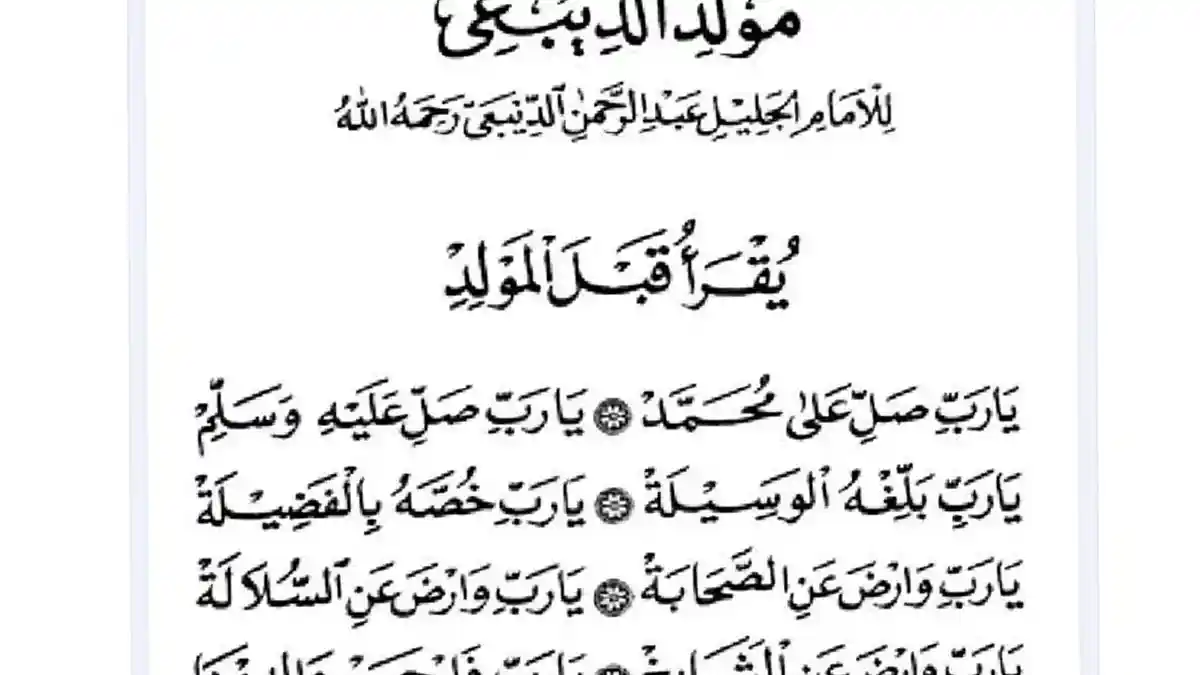 مَوْلِدُ الدِّيْبَعِي
لِلْاِمَامِ الْجَلِيْلِ عَبْدِ الرَّحْمٰنِ الدِّيْبَعِيّ رَحِمَهُ اللهُ
يُقْرَأُ قَبْلَ الْمَوْلِدِ
يَارَبِّ صَلِّ عَلٰى مُحَمَّدْ ۞ يَارَبِّ صَلِّ عَلَيْهِ وَسَلِّمْ
يَارَبِّ بَلِّغْهُ الْوَسِيْلَةْ ۞ يَارَبِّ خُصَّهُ بِالْفَضِيْلَةْ
يَارَبِّ وَارْضَ عَنِ الصَّحَابَةْ ۞ يَارَبِّ وَارْضَ عَنِ السُّلَالَةْ
يَارَبِّ وَارْضَ عَنِ الْمَشَايِخْ ۞ يَارَبِّ فَارْحَمْ وَالِدِيْنَا